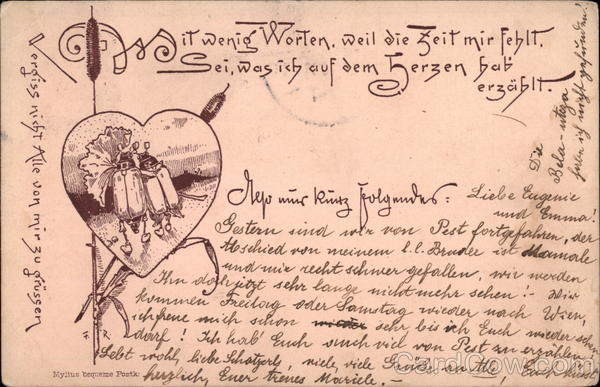 Mit wenig Worten, weil die Zeit mir fehlt,
Sei, was ich auf dem Herzen hab'
erzählt.
Vergiss nicht Alle von mir zu grüssen
Also nur kurz folgendes:
Liebe Eugenie
und Emma!
Gestern sind wir von Pest fortgefahren, der
Abschied von meinem l. l. Bruder ist Mamale
und mir recht schwer gefallen, wir werden
Ihn doch jetzt sehr lange nicht mehr sehen! Wir
kommen Freitag oder Samstag wieder nach Wien,
ich freue mich schon sehr, bis ich Euch wieder sehen
dorf! Ich hab' Euch auch viel von Pest zu erzählen.
Lebt wohl, liebe Schatzerln, viele, viele
herzlich, Euer treues Mariele.-
Die
Bela-
haben ich nicht gefunden!
F. R.
Mylius bequeme Postk:
CardCow.com